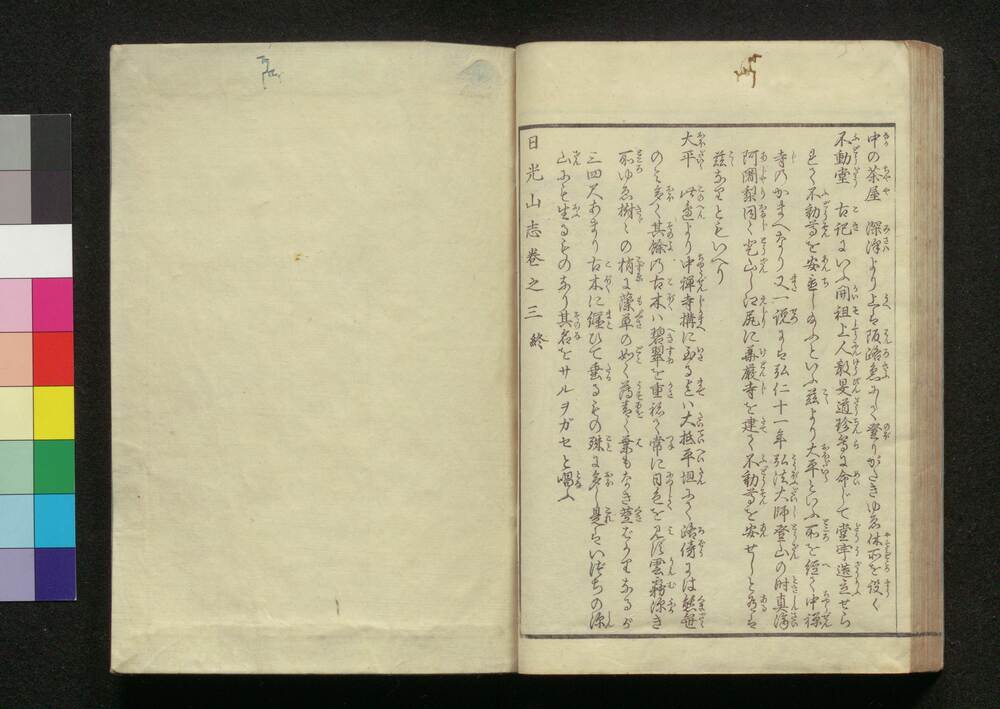 中の茶屋　深澤より上は阪路急にして登りがたきゆゑ休所を設く
不動堂　古記にいふ開祖上人教旻道珍等に命じて堂宇造立せら
れて不動尊を安置し給ふといふ茲より大平といふ所を經て中禪
寺のかまへなり又一説には弘仁十一年弘法大師登山の時真濟
阿闍梨同く登山し江尻に華嚴寺を建て不動尊を安せしとあるは
茲なりともいへり
大平　此邊より中禪寺構に至るまでは大抵平坦にして路傍には熊笹
のみ多く其餘の古木は碧翠を重ねて常に日色を見ず雲霧深き
所ゆゑ樹々の梢に藻草の如く薄青く葉もなき莖ばかりなるが
三四尺あまり古木に纏ひて垂るもの殊に多し是はいづちの深
山にも生るものなり其名をサルヲガセと唱ふ
日光山志巻之三終